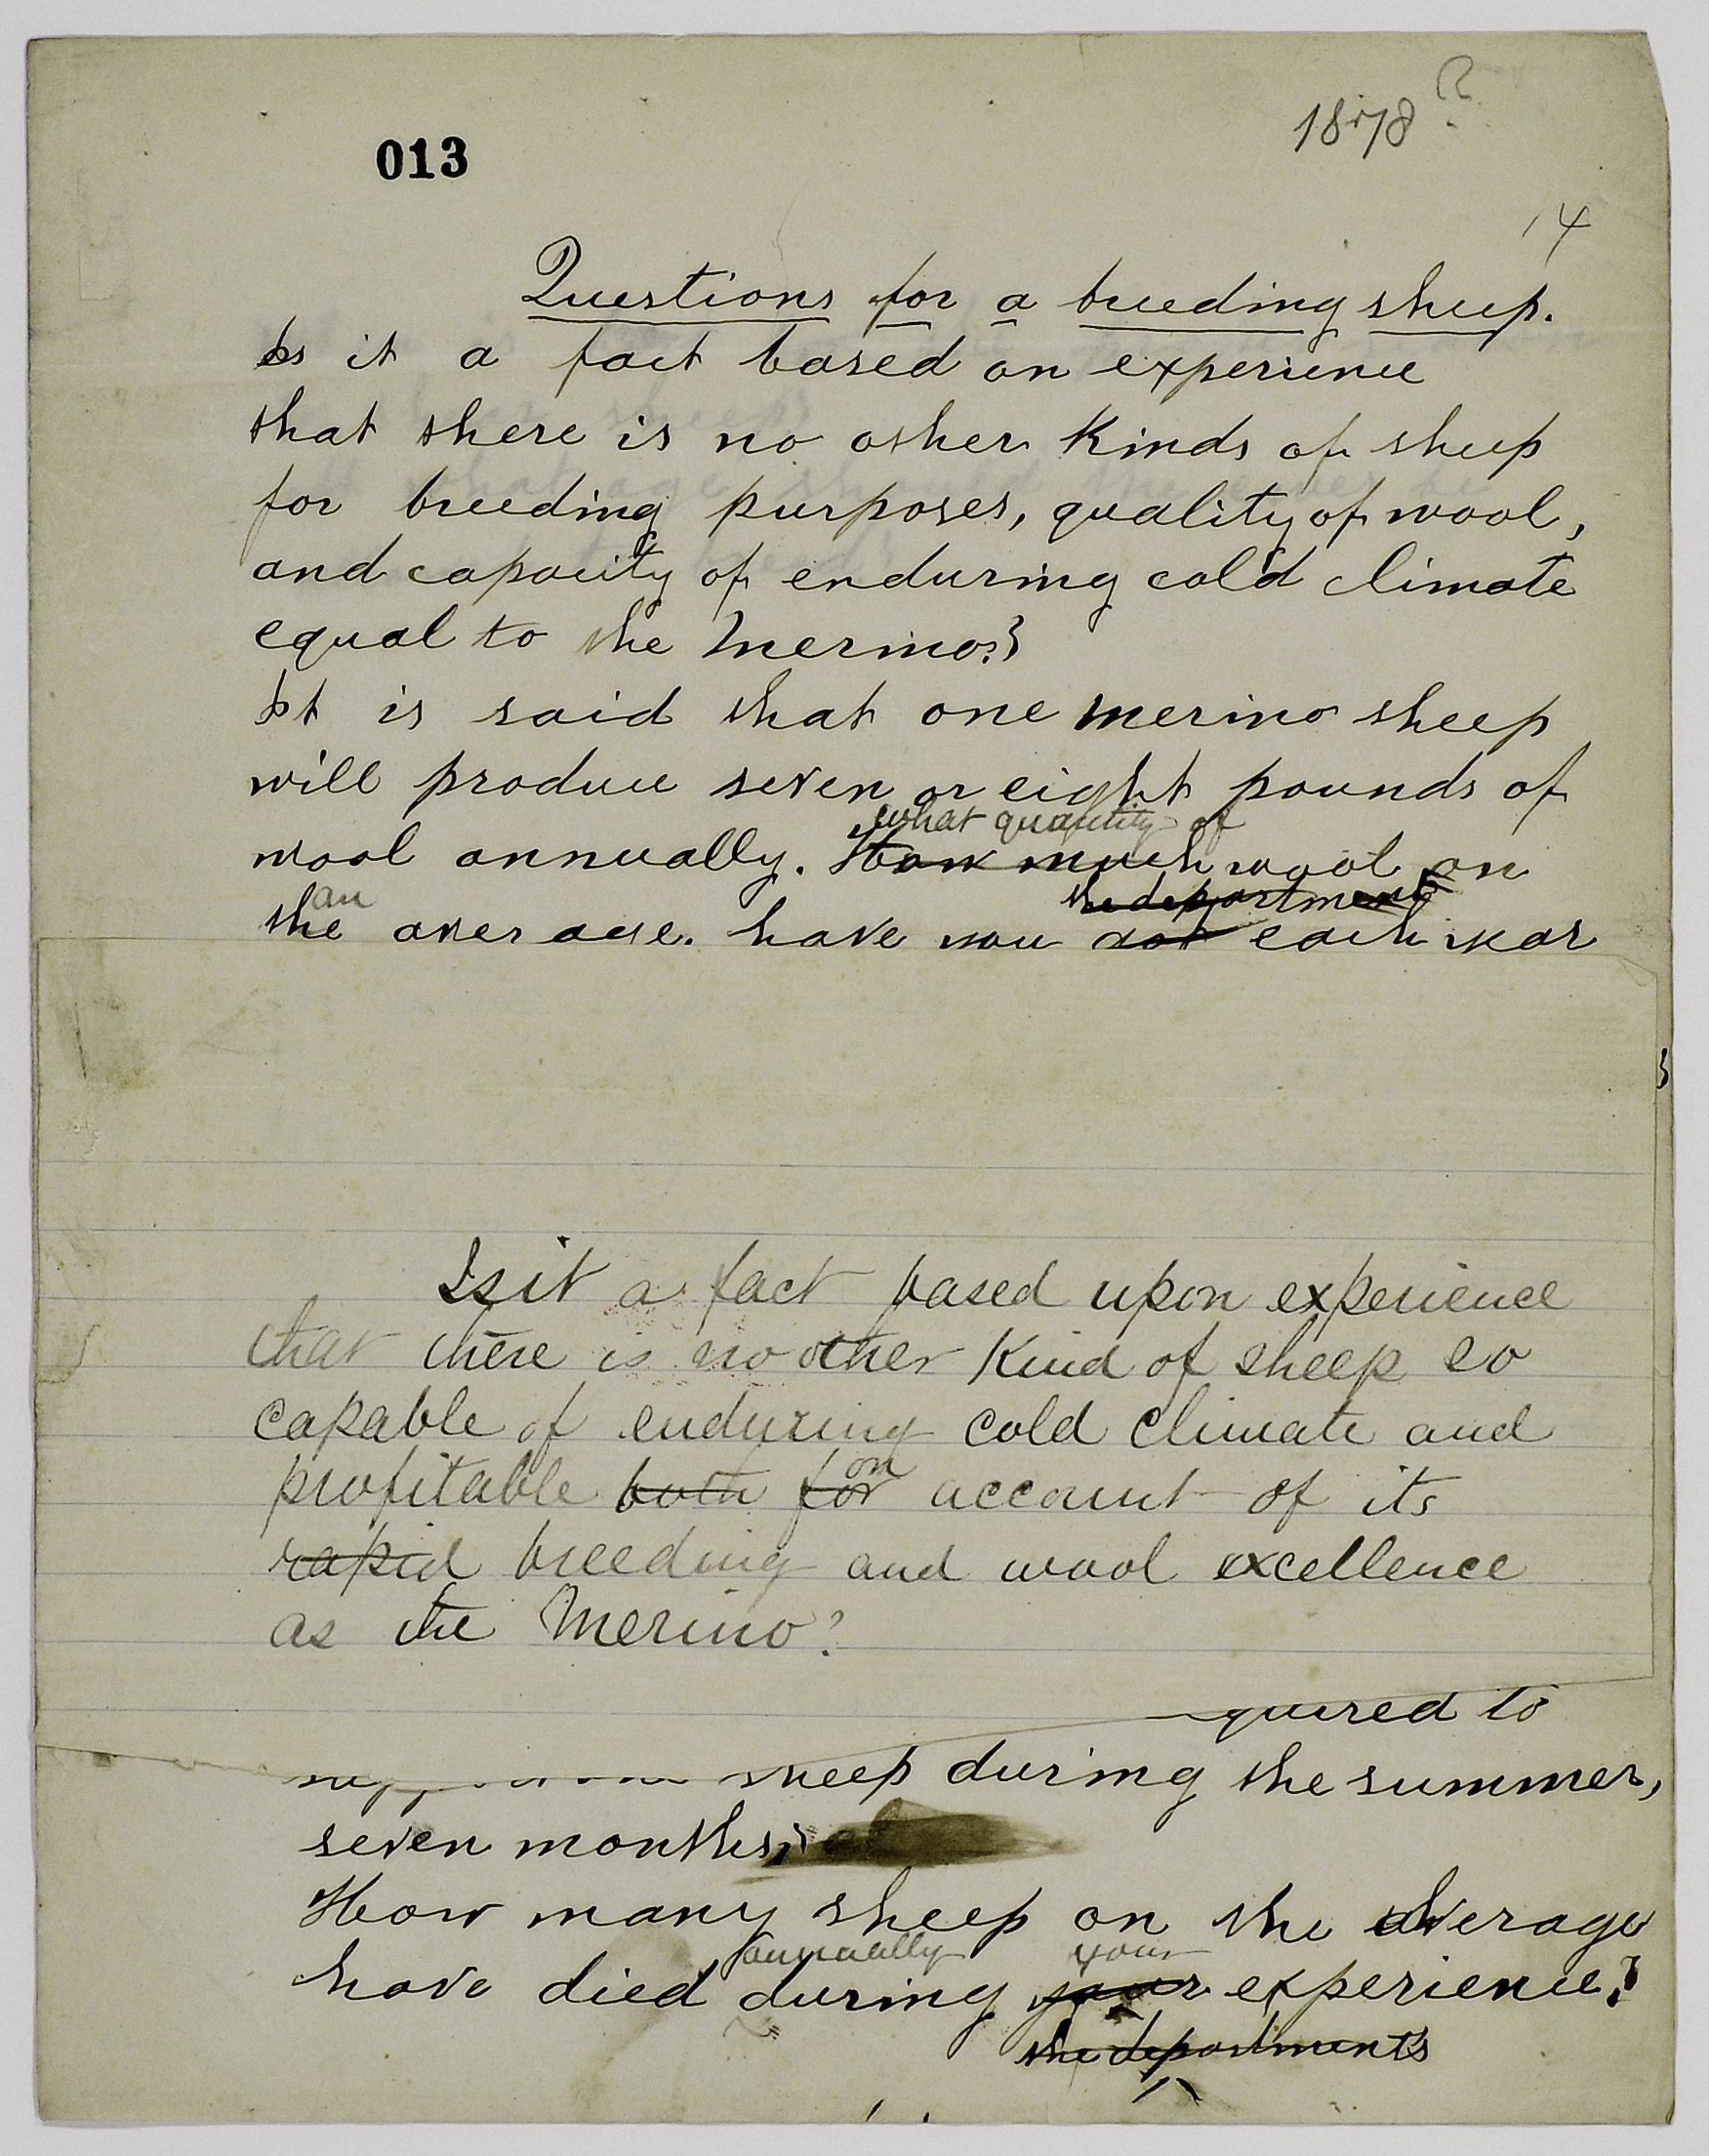 013
1878?
14
Questions for a breeding sheep.
Is it a fact based on experience
that there is no other kinds of sheep
for breeding purposes, quality of wool,
and capacity of enduring cold climate
equal to the Merino?
It is said that one merino sheep
will produce seven or eight pounds of
what quantity of
wool annually. How much wool on
an the department
the average. have you got each year
Is it a fact based upon experience
that there is no other Kind of sheep so
capable of enduring cold climate and
on
profitable both for account of its
rapid breeding and wool excellence
as the Merino?
quired to
sheep during the summer,
seven months?
How many sheep on the average
annually your
have died during your experience?
the department's